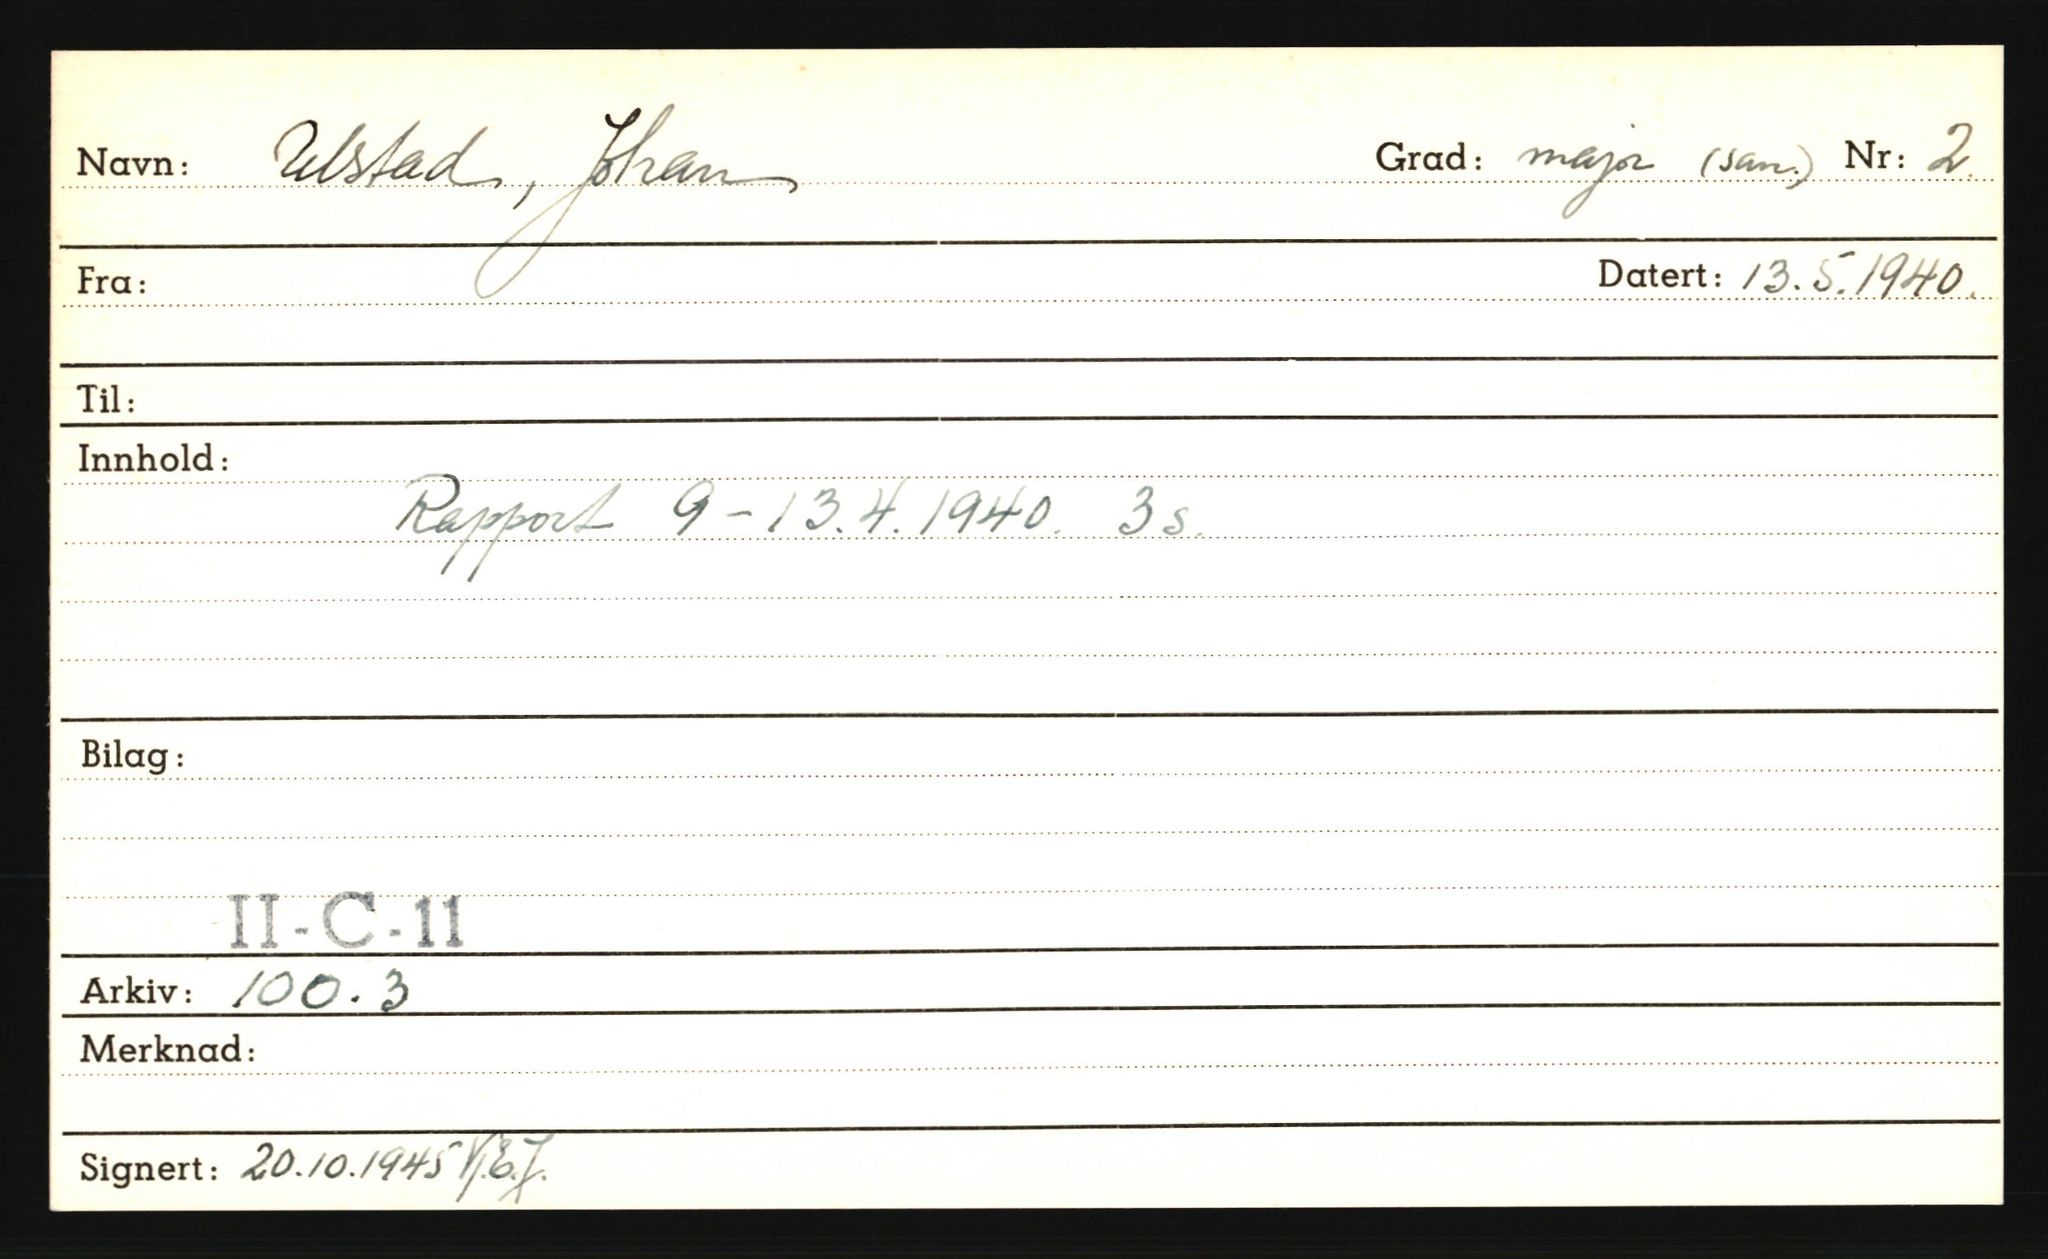 Navn: Ulstad, Johan Grad: major (san.) Nr: 2.
Fra: Datert: 13.5.1940.
Til:
Innhold:
Rapport 9-13.4.1940. 3s.
Bilag:
II-C-11
Arkiv: 100.3
Merknad:
Signert: 20.10.1945